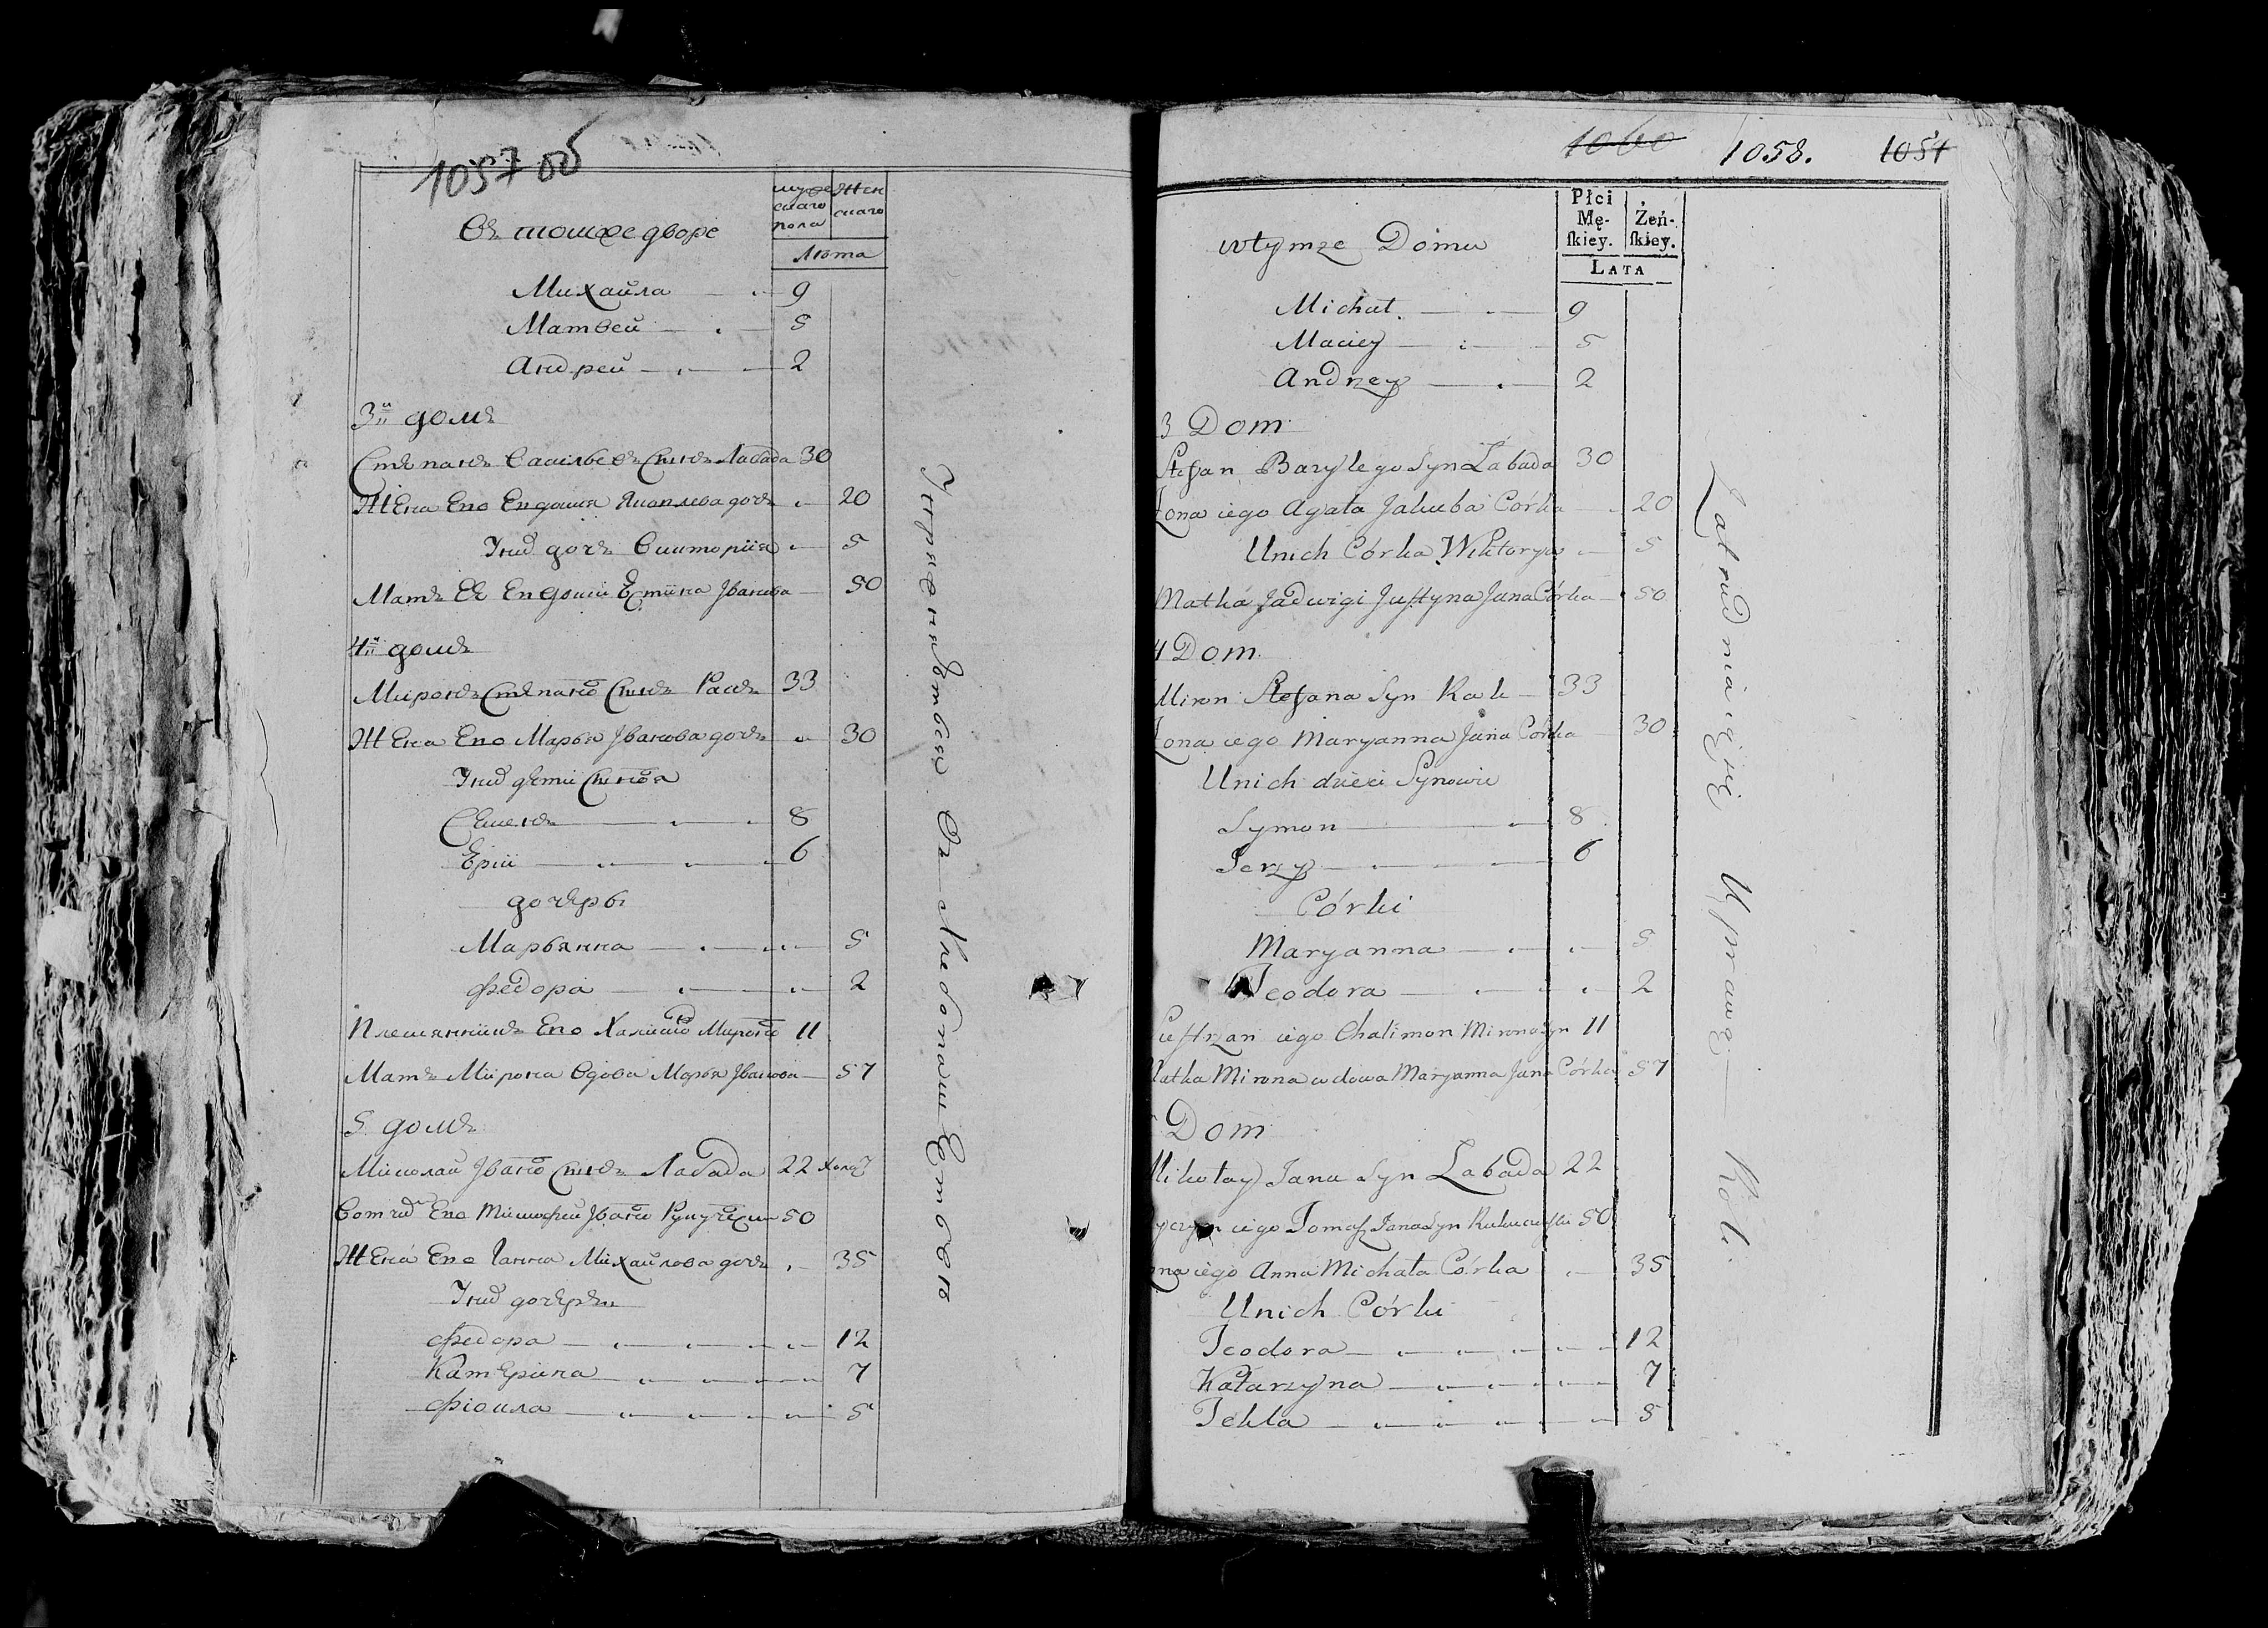 1057 об
Въ томже дворе
муже
скаго
пола
Жен
скаго
Лѣта
Михайла 9
Матвей 5
Андрей 2
3й домъ
Стѣпанъ Васильевъ Сынъ Лабада 30
Жена Его Ягодыя Яковлева дочь 20
Ихъ дочь Викторыя 5
Мать Ее Устина Иванова 50
4й домъ
Миронъ Стѣпановъ Сынъ Ракъ 33
Жена Его Марья Иванова дочь 30
Ихъ дети Сыновья
Семенъ 8
Ерій 6
дочери
Марьянна 5
Федора 2
Племянникъ Его Миронов 11
Мать Мирона Вдова Марья Иванова 57
5 домъ
Миколай Иванов Сынъ Лабада 22
Вотчим Его Тимофей Иванов 50
Жена Его Ганна Михайлова дочь 35
Их дочери
Федора 12
Катерина 7
Фіокла 5
Упражняются въ хлебопашестве
1060 1058. 1051
wtymze Domu
Płci
Mę-
ſkiey.
Żeń-
ſkiey.
LATA
Michał 9
Maciey 5
Andrzey 2
3 Dom
Stefan Bazylego Syn Łabada 30
Zona iego Agata Jakuba Córka 20
Unich Córka Wiktorya 5
Matka Jadwigi Justyna Jana Córka 50
4 Dom
Miron Stefana Syn Rak 33
Zona iego Maryanna Jana Córka 30
Unich dzieci Synowie
Symon 8
Jerzy 6
Córki
Maryanna 5
Teodora 2
iego Chalimon Mirona Syn 11
Matka Mirona wdowa Maryanna Jana Córka 57
Dom
Mikołay Jana Syn Łabada 22
iego Tomasz Jana Syn 50
iego Anna Michała Córka 35
Unich Córki
Teodora 12
Katarzyna 7
Tekla 5
Zatrudniaią się Uprawę Roli